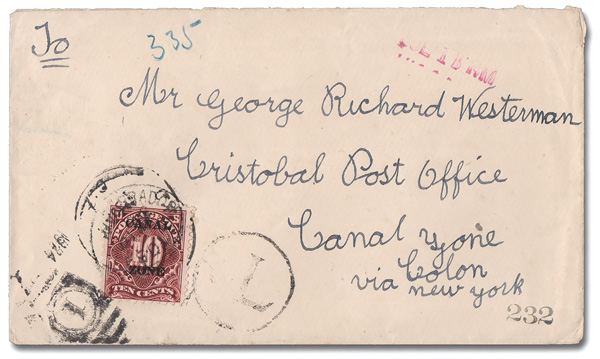 To
335
Mr George Richard Westerman
Cristobal Post Office
Canal Yone
Colon
via new york
CANAL
10
ZONE
TEN CENTS
T
1
232